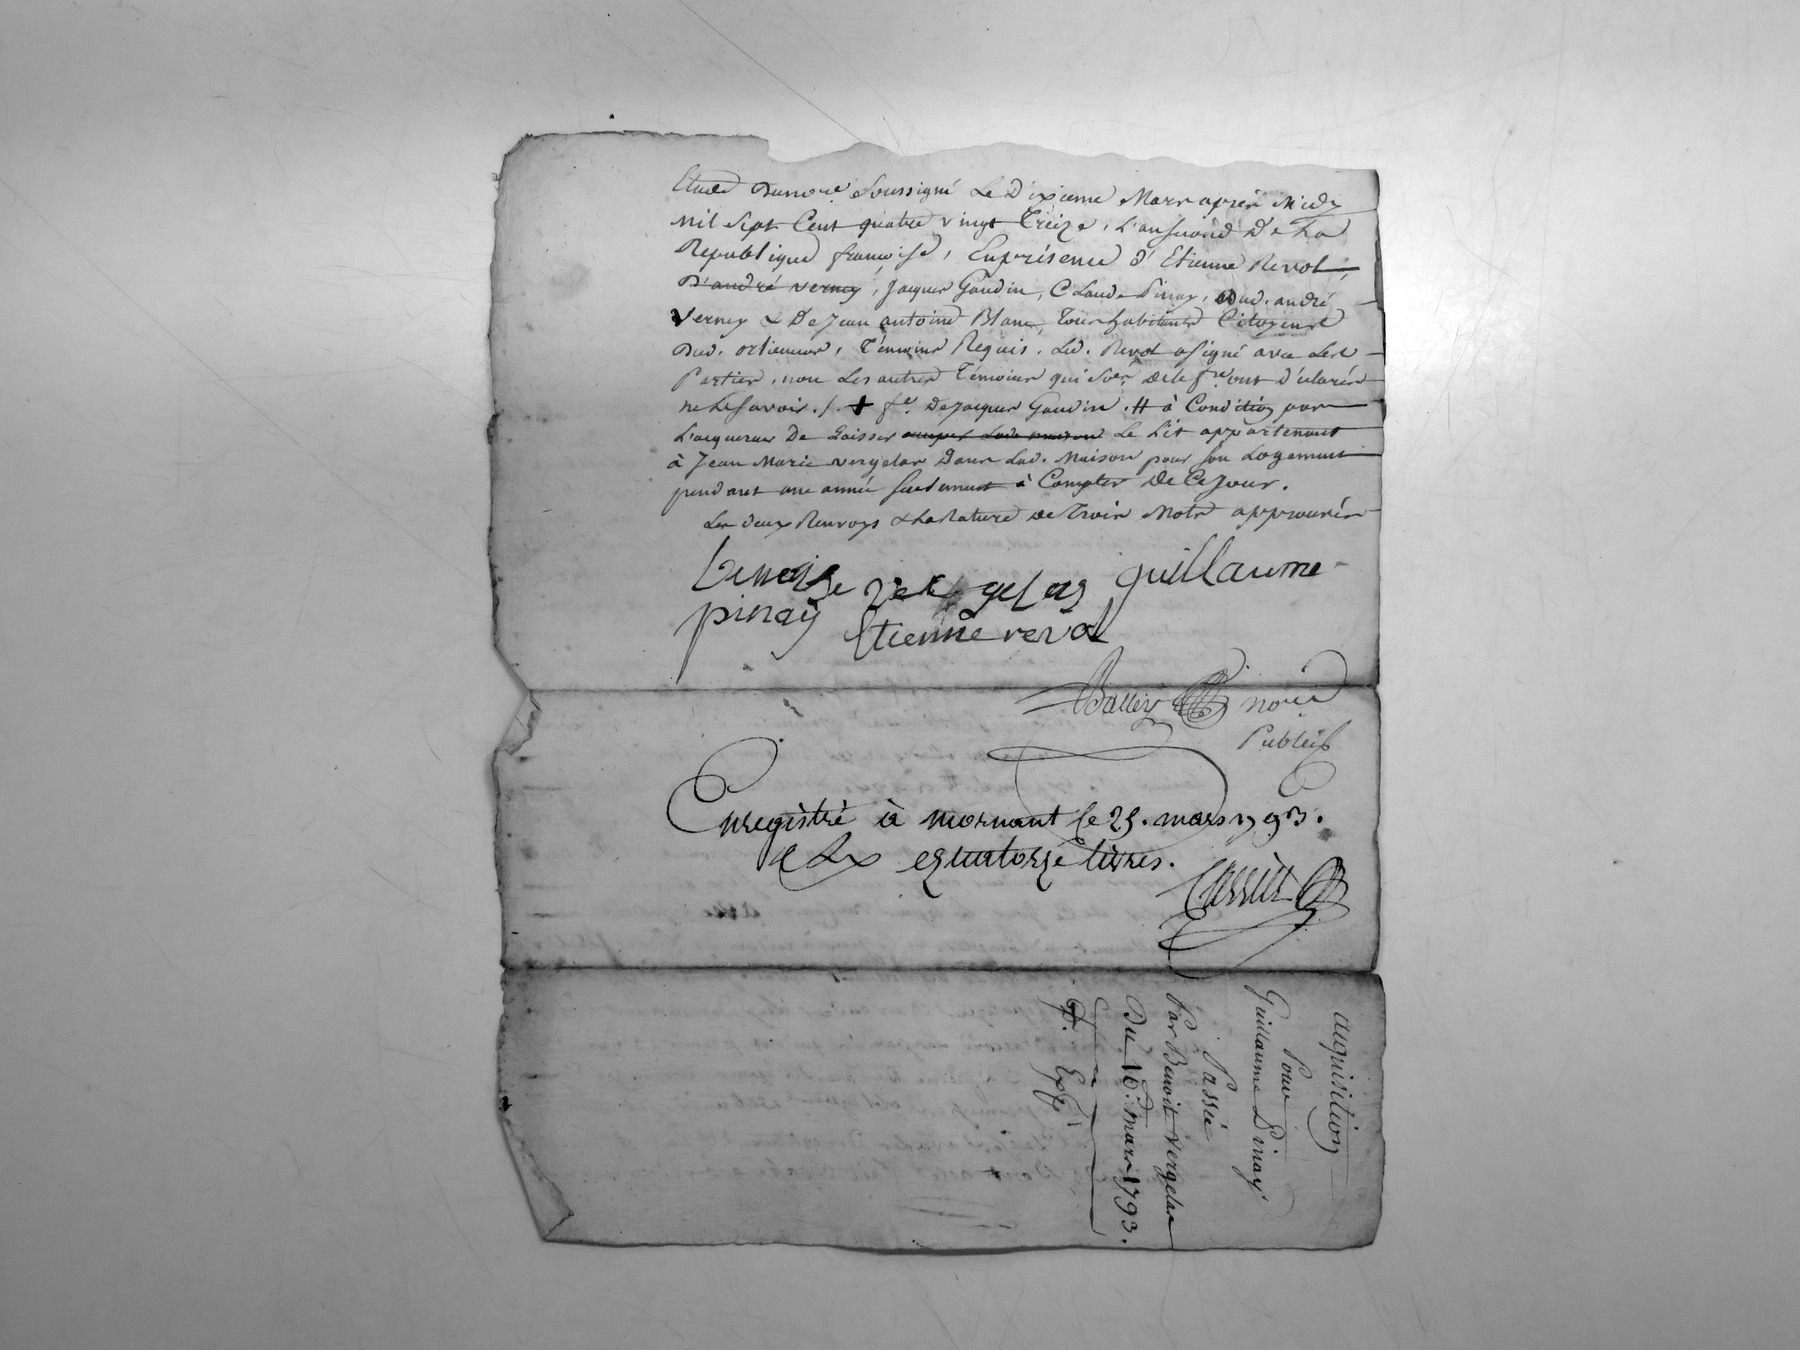 Etude Du no.re soussigné Le Dixieme Mars après Midy
Mil Sept Cent quatre vingt Treize, L'an second De La
Republique françoise, En présence d'Etienne Revol,
D'andré verney, Jacques Gaudin, Claude Pinay, Dud. andré
Verney & De Jean antoine Blanc, Tous habitants Citoyens
Dud. Témoins Requis. Led. Revol a signé avec Les
Parties, non Les autres Témoins qui de ce ont Déclarés
ne Le savoir ./. + f.e De Jacques Gaudin. # à Condition par
L'acquereur De Laisser Le Lit appartenant
à Jean Marie vergelas Dans Lad. Maison pour son Logement
pendant une année seulement à Compter De Ce Jour.
Les deux Renvoys & La Rature De Trois Mots approuvés
benoit vergelas guillaume
pinay Etienne revol
Balley no.re
Public
Enregistré à mornant le 25. mars 1793.
quatorze livres.
acquisition
Pour
Guillaume Pinay
Passée
Par Benoit Vergelas
Du 10.e mars 1793.
Exp.é